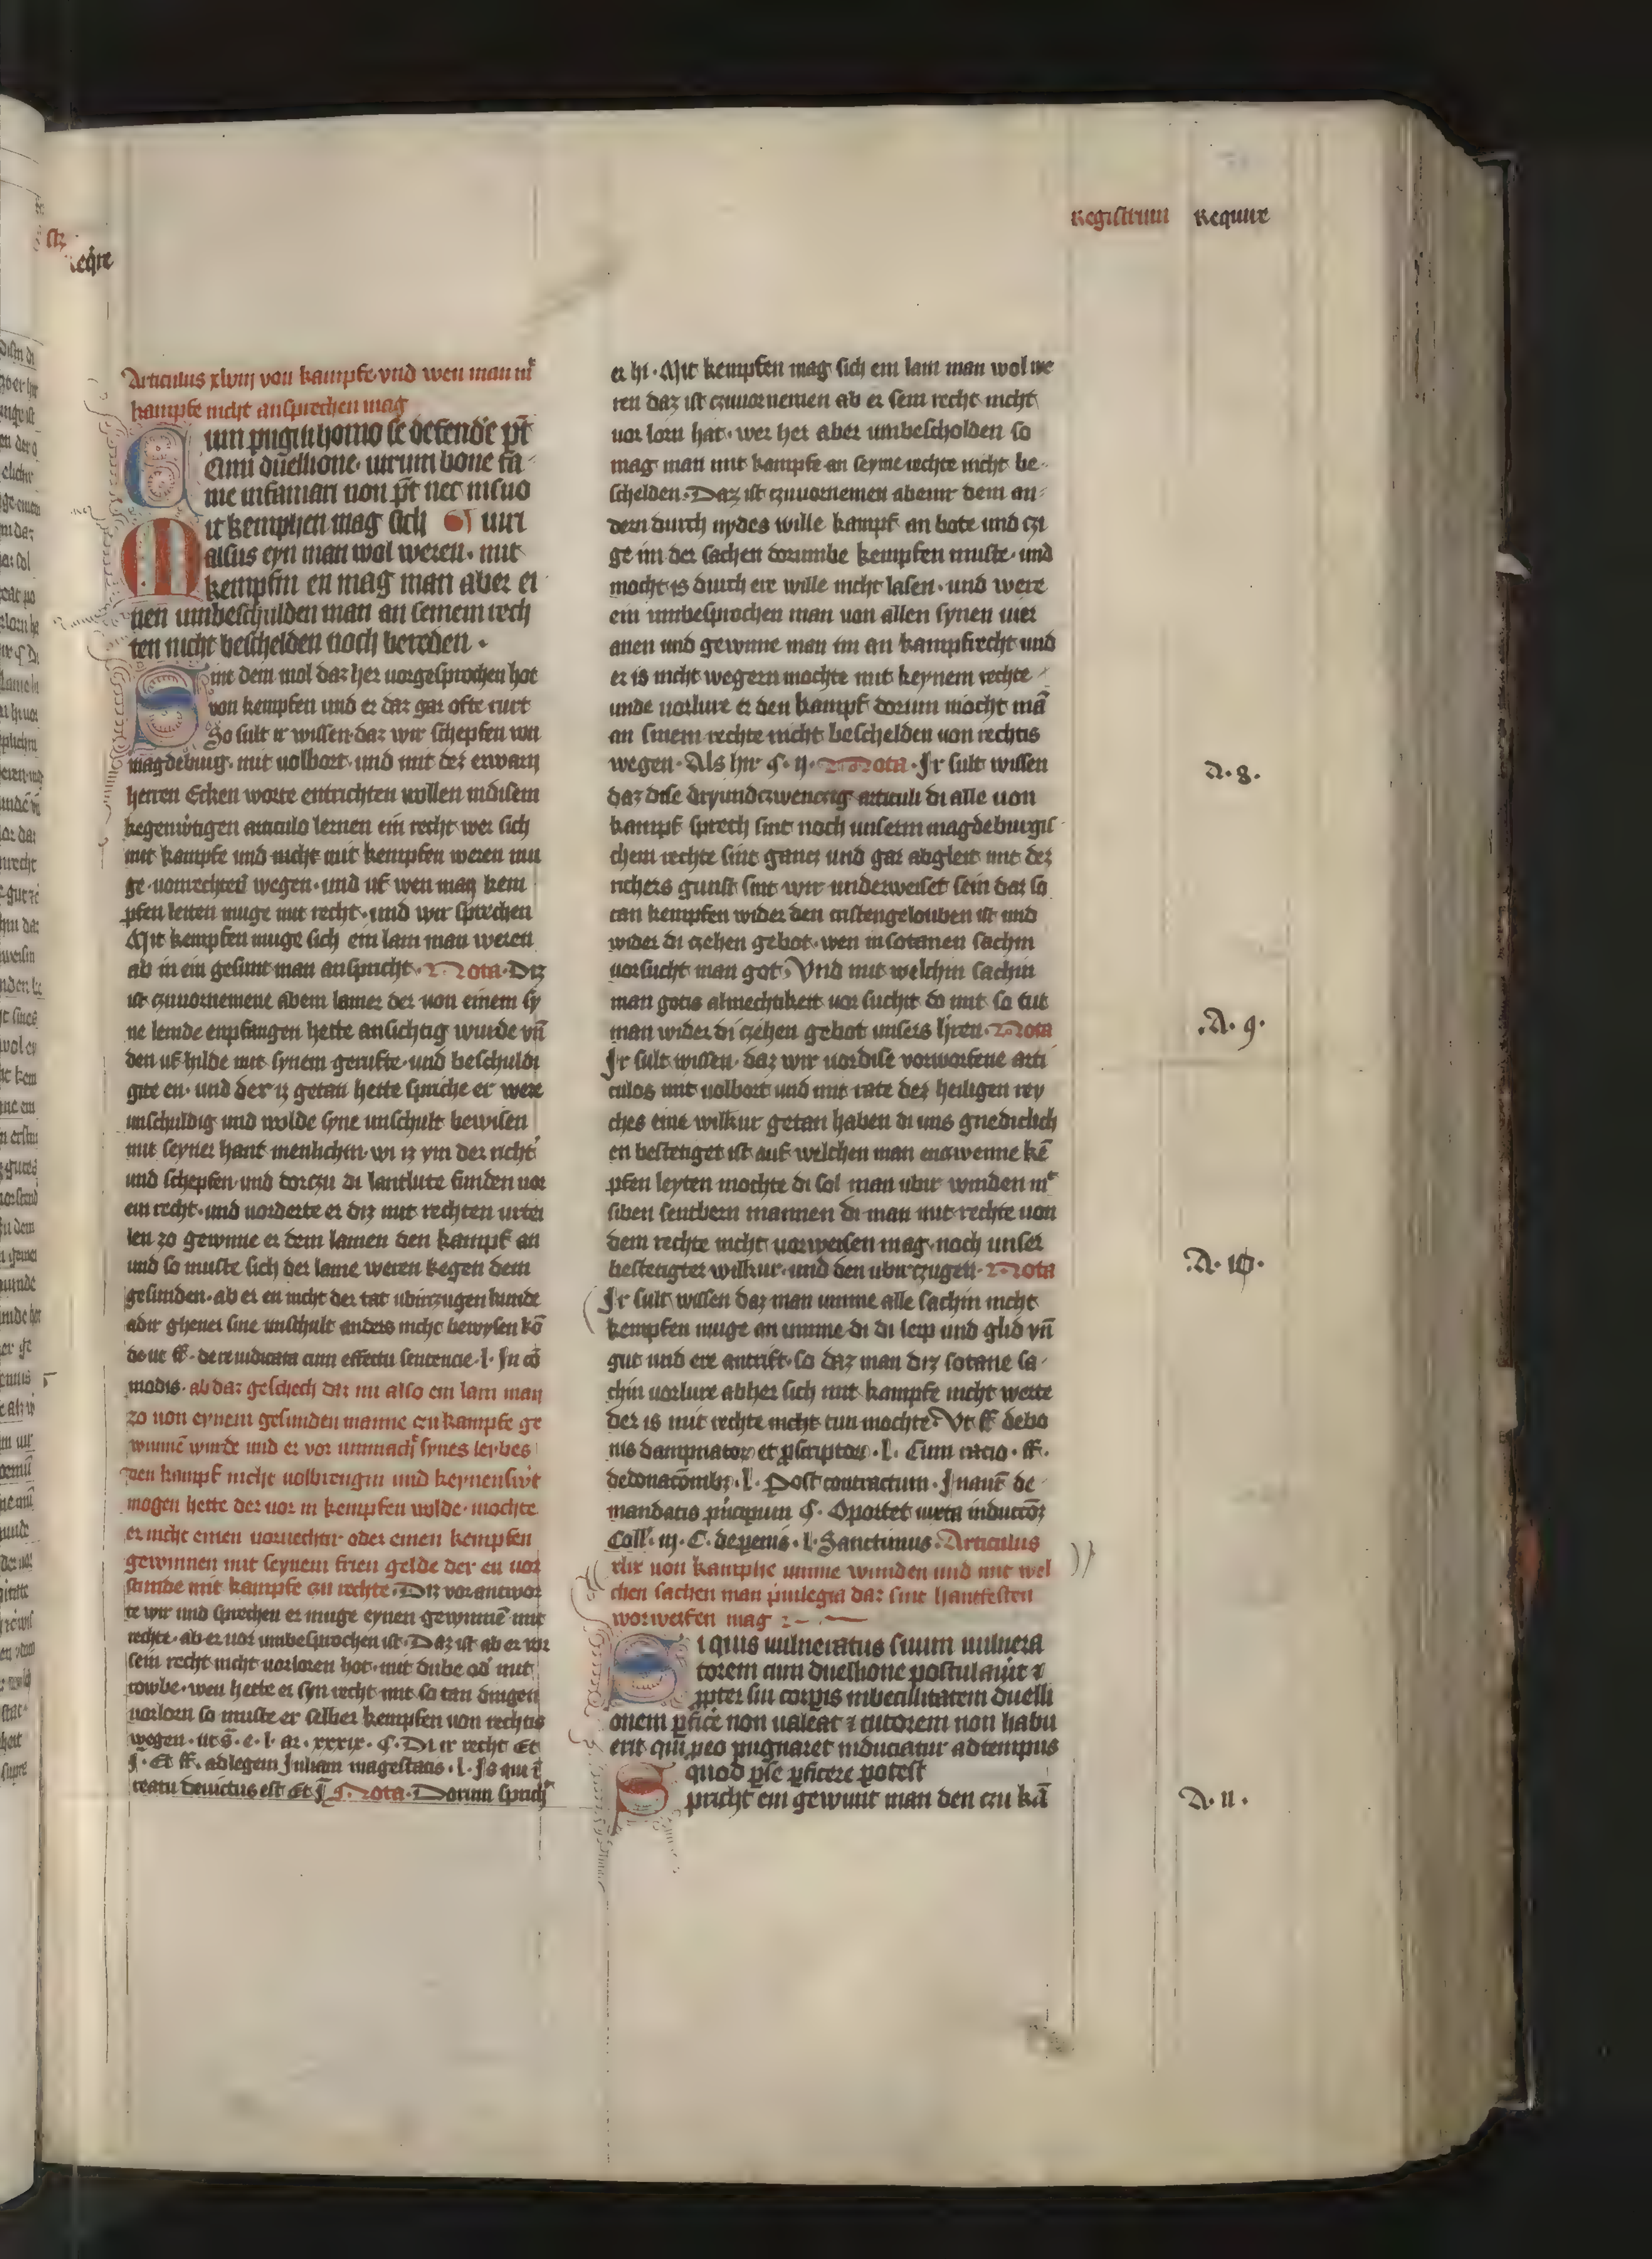 Registrum Require
Articulus xlviij von kampfe vnd wen man mit
kampfe nicht ansprechen mag
Cum pugili homo se defende pt
Cum duellione. uirum bone fa
me infamari non pt nec in suo
Mit kemphen mag sich iuri
alsus eyn man wol weren. mit
kempfin en mag man aber ei
nen unbeschulden man an seinem rech
ten nicht beschelden noch bereden.
Sint dem mol daz her uorgesprochen hot
von kempfen und er daz gar ofte rurt
So sult ir wissen daz wir schepfen von
magdeburg. mit uolbort. und mit der erwarn
herren Ecken worte entrichten wollen in disem
kegenwtigen articulo lernen ein recht wer sich
mit kampfe und nicht mit kempfen weren mu
ge. uon rechten wegen. und uf wen man kem
pfen leiten muge mit recht. und wir sprechen
Mit kempfen muge sich ein lam man weren
ab in ein gesunt man anspricht. Nota. Diz
ist czuuornemene abein lamer der von einem sy
ne lemde enpfangen hette ansichtig wurde vn
den uf hilde mit synem gerufte. und beschuldi
gite en. und der iz getan hette spriche er were
unschuldig und wolde syne unschult bewisen
mit seyner hant menlichin. wi iz ym der richt
und schepfen. und dorczu di lantlute funden uor
ein recht. und uorderte er diz mit rechten urtei
len zo gewinne er dem lamen den kampf an
und so muste sich der lame weren kegen dem
gesunden. ab er en nicht der tat ubirczugen kunde
adir ghener sine unschult anders nicht bewysen ko
de ut ff. de re iudicata cum effectu sentencie. l. In co
modis. ab daz geschech daz nu also ein lam man
zo von eynem gesunden manne czu kampfe ge
wunne wurde und er vor unmacht synes leybes
den kampf nicht uolbrengin und keynen
mogen hette der uor in kempfen wolde. mochte
er nicht einen uoruechtir. oder einen kempfen
gewinnen mit seynem frien gelde der en uor
stunde mit kampfe czu rechte. Diz vorantwor
te wir und sprechen er muge eynen gewinne mit
rechte. ab er uor umbesprochen ist. Daz ist ab er vor
sein recht nicht uorloren hot. mit dube od mit
rowbe. wen hette er syn recht mit so tan dingen
uorlorn so muste er selber kempfen von rechtis
wegen. ut s. e. l. ar. xxxix. §. Di ir recht Et
I. Et ff. ad legem Juliam magestatis. l. Is qui i
reatu deuictus est Et Nota. Dorum sprich
er hi. Mit kempfen mag sich ein lam man wol we
ren daz ist czuuornemen ab er sein recht nicht
uor lorn hat. wer her aber umbescholden so
mag man mit kampfe an seyme rechte nicht be
schelden. Daz ist czuuornemen abeinr dem an
dern durch nydes wille kampf an bote und czi
ge im der sachen dorumbe kempfen muste. und
mocht is durch ere wille nicht lasen. und were
ein umbesprochen man von allen synen uier
anen und gewinne man im an kampfrecht und
er is nicht wegern mochte mit keynem rechte
unde uorlure er den kampf dorum mocht ma
an sinem rechte nicht beschelden uon rechtis
wegen. Als hir §. ij. Nota. Ir sult wissen
daz dise dryundczwenczig articuli di alle uon
kampf sprech sint noch unserm magdeburgis
chem rechte sint gancz und gar abgleit mit dez
richers gunst sint wir underweiset sein daz so
tan kempfen wider den cristengelouben ist und
wider di czehen gebot. wen in sotanen sachin
uorsucht man got. Vnd mit welchin sachin
man gotis almechtikeit uor sucht do mit so tut
man wider di czehen gebot unsers hren. Nota
Ir sult wissen. daz wir uor dise vorworfene arti
culos mit uolbort und mit rate dez heiligen rey
ches eine wilkur getan haben di uns gnediclich
en bestetiget ist auf welchen man enczwenne ke
pfen leyten mochte di sol man ubir winden mt
siben sentbern mannen di man mit rechte uon
dem rechte nicht uorweisen mag. noch unser
bestetigter wilkur. und den ubirczugen. Nota
Ir sult wissen daz man umme alle sachin nicht
kempfen muge an umme di di leip und glid vn
gut und ere antrift. so daz man diz sotane sa
chin uorlure abher sich mit kampfe nicht werte
der is mit rechte nicht tun mochte. Vt ff de bo
nis dampnator et pscriptor. l. Cum racio. ff.
de donacomb. l. Post contractum. In aut de
mandatis pncipum §. Oportet iuxta induccoz
Coll. iij. C. de penis. l. Sanctimus. Articulus
xlix uon kamphe umme wunden und mit wel
chen sachen man priuilegia daz sint hantfesten
worwerfen mag
Si quis uulneratus suum uulnera
torem cum duellione postulauit et
ppter sui corpis inbecillitatem duelli
onem pfice non ualeat et tutorem non habu
erit qui p eo pugnaret induciatur ad tempus
quod p se pficere potest
Spricht ein gewunt man den czu ka
A. 8.
A. 9.
A. 10.
A. 11.